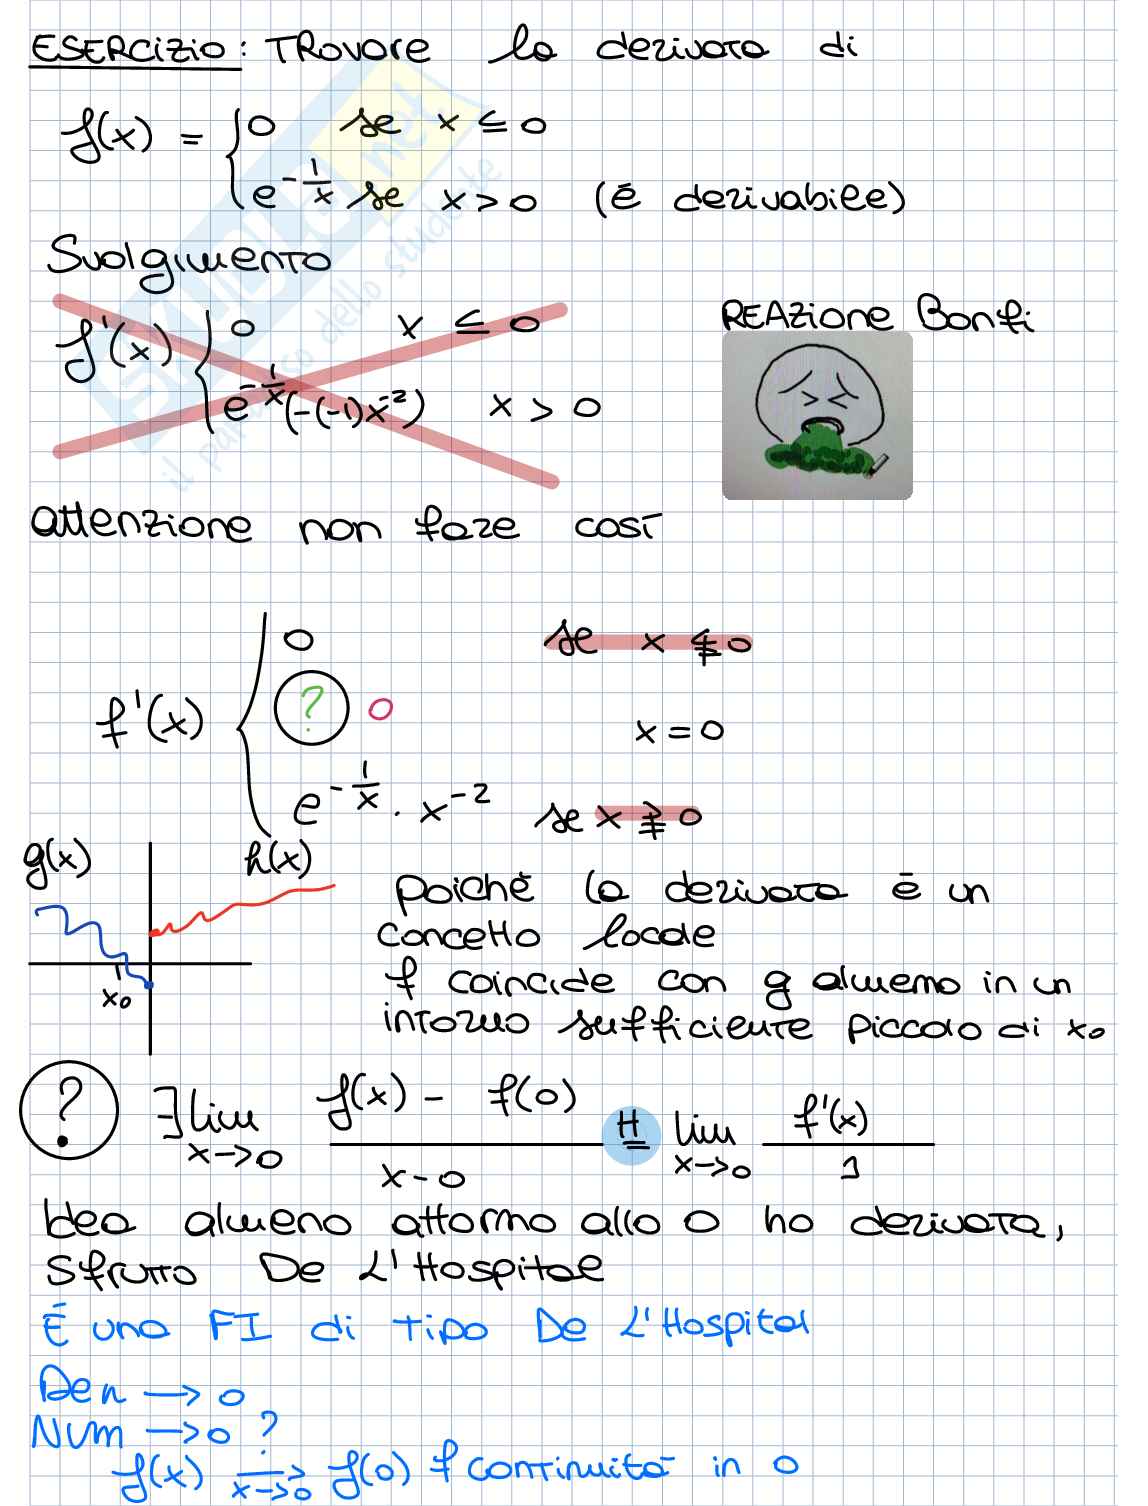 ESERCIZIO: TROVARE la derivata di
f(x) = { 0 se x ≤ 0
e^{-1/x} se x > 0 (è derivabile)
Svolgimento
f'(x) { 0 x ≤ 0
e^{-1/x}(-(-1)x^{-2}) x > 0
REAZIONE Bonfi
attenzione non fare così
f'(x) { 0 se x ≨ 0
? 0 x = 0
e^{-1/x} · x^{-2} se x ≩ 0
g(x) h(x)
x₀
Poiché la derivata è un
concetto locale
f coincide con g almeno in un
intorno sufficiente piccolo di x₀
? ∃ lim_{x→0} (f(x) - f(0))/(x-0) =^H lim_{x→0} f'(x)/1
Idea almeno attorno allo 0 ho derivata,
sfrutto De L'Hospital
È una FI di tipo De L'Hospital
Den → 0
Num → 0 ?
f(x) →_{x→0} f(0) f continuità in 0
STUDIA net
il paradiso dello studente